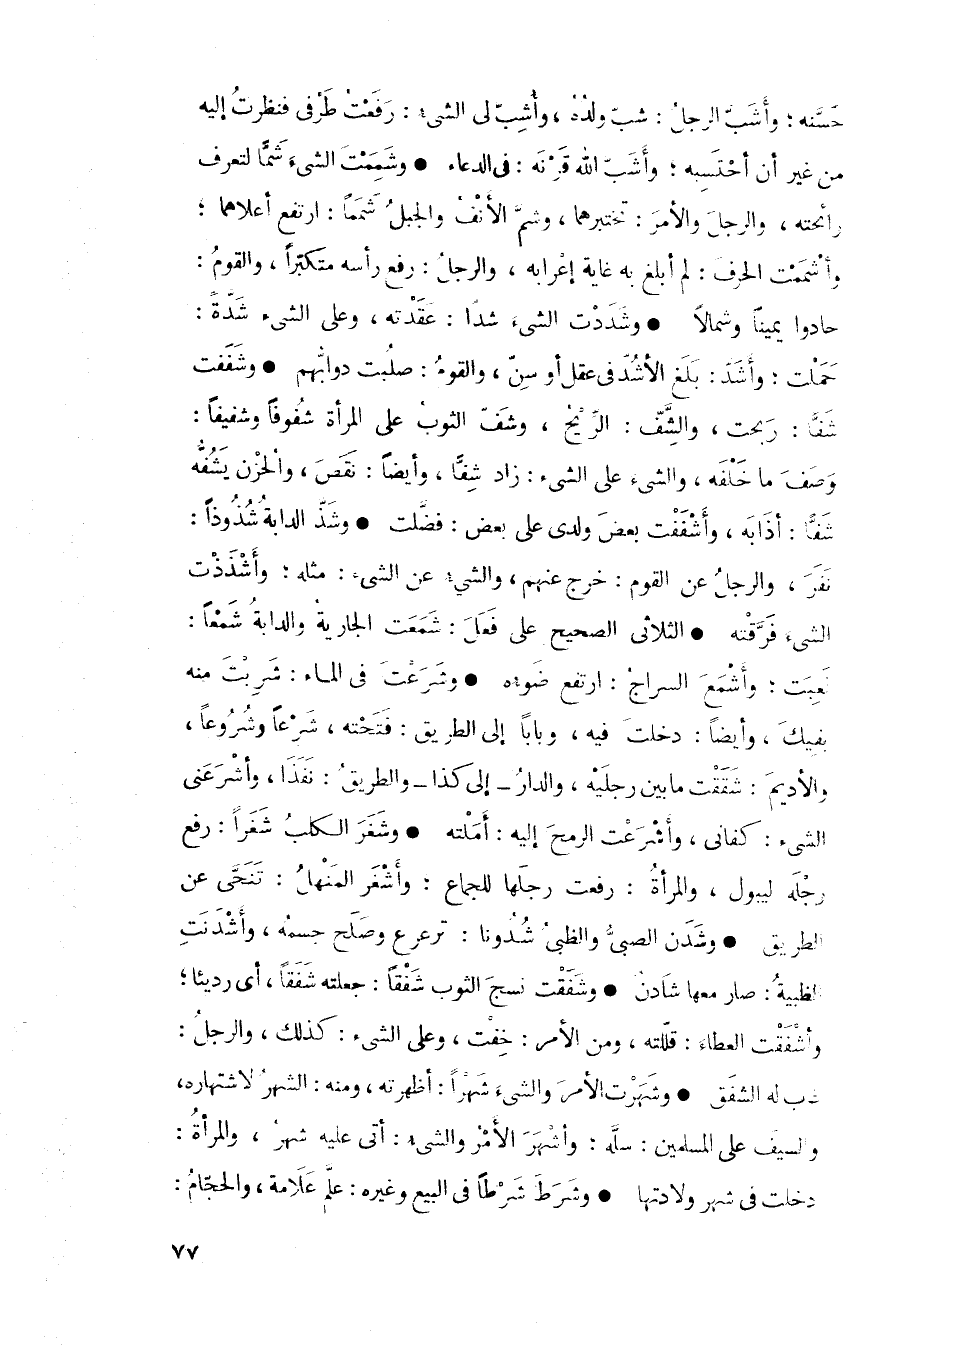 حَسَّنه ؛ وأَشَبَّ الرجلُ : شبّ ولدُهُ ، وأُشِبّ لى الشىءُ : رَفَعْتُ طَرْفى فنظرتُ إليه
من غير أن أحْتَسِبه ؛ وأَشَبّ الله قَرْنَه : فى الدعاء ● وشَمِمْتَ الشىءَ شَمًّا لتعرف
رائحته ، والرجلَ والأمرَ : تختبرهما ، وشمَّ الأَنْفُ والجبلُ شَمَماً : ارتفع أعلاهما ؛
وأشْمَمْت الحرفَ : لم أبلغ به غاية إعْرابه ، والرجلُ : رفع رأسه متكبّراً ، والقومُ :
حادوا يميناً وشمالاً ● وشَدَدْت الشىءَ شدًا : عَقَدْته ، وعلى الشىء شَدَّةً :
حَمَلْت ؛ وأَشَدَّ : بَلَغ الأشُدّ فى عقل أو سِنّ ، والقومُ : صلُبت دوابُّهم ● وشَفَفت
شَفًّا : رَبحت ، والشِّفّ : الرِّبْحُ ، وشفّ الثوبُ على المرأة شفُوفاً وشفيفاً :
وَصَفَ ما خَلْفَه ، والشىءُ على الشىء : زاد شِفًّا ، وأيضاً : نَقَصَ ، والحُزْن يَشُفُّه
شَفًّا : أذَابَه ، وأَشْفَفْت بعضَ ولدى على بعض : فضَّلت ● وشَذّ الدابةُ شُذُوذاً :
نَفَرَ ، والرجلُ عن القوم : خرج عنهم ، والشىءُ عن الشىء : مثله ؛ وأَشْذَذْت
الشىءَ فَرَّقْته ● الثلاثى الصحيح على فَعَلَ : شَمَعَت الجاريةُ والدابةُ شَمْعاً :
لَعِبَت ؛ وأَشْمَعَ السراجُ : ارتفع ضَوءُه ● وشَرَعْتَ فى الماء : شَرِبْتَ منه
بفِيكَ ، وأيضاً : دخلتَ فيه ، وباباً إلى الطريق : فَتَحْته ، شَرْعاً وشُرُوعاً ،
والأديمَ : شَقَقْت مابين رجلَيْه ، والدارُ ــ إلى كذا ــ والطريقُ : نَفَذَا ، وأشْرَعَنى
الشىء : كفانى ، وأَشْرَعْت الرمحَ إليه : أَمَلْته ● وشَغَرَ الكلبُ شَغَراً : رفع
رِجْلَه ليبول ، والمرأةُ : رفعت رجلَها للجماع ؛ وأَشْغَر المَنْهلُ : تَنَحَّى عن
الطريق ● وشَدَن الصبىُّ والظبىُ شُدُونا : ترعرع وصَلَح جسمُه ، وأَشْدَنَتِ
الظبيةُ : صار معها شَادنٌ ● وشَفَقْت نسجَ الثوب شَفْقاً : جعلته شَفَقاً ، أى رديئا ؛
وأَشْفَقْت العطاءَ : قلّلته ، ومن الأمر : خِفْت ، وعلى الشىء : كذلك ، والرجلُ :
له الشفَق ● وشَهَرْت الأمرَ والشىءَ شَهْراً : أظهرته ، ومنه : الشهرُ لاشتهاره،
والسيفَ على المسلمين : سلّه ؛ وأَشْهَرَ الأَمْرُ والشىءُ : أتى عليه شهرٌ ، والمرأةُ :
دخلت فى شهر ولادتها ● وشَرَطَ شَرْطاً فى البيع وغيره : علَّم عَلَامة ، والحجّامُ :
٧٧